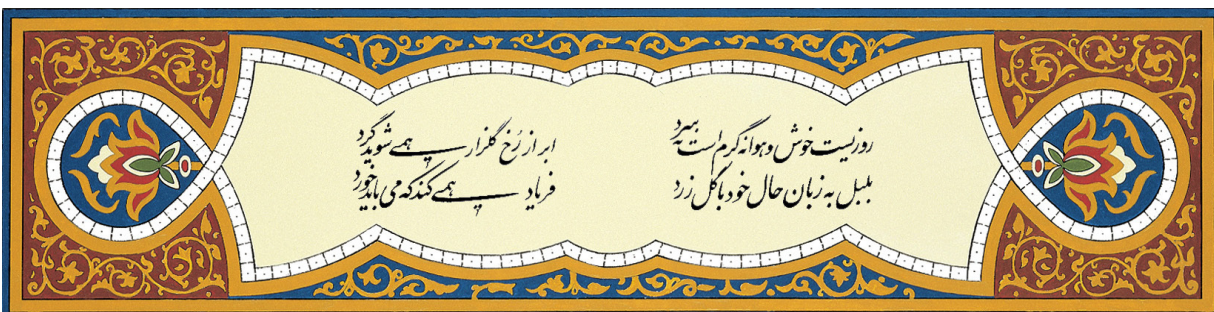 روزیست خوش و هوا نه گرم است نه سرد
ابر از رخ گلزار همی شوید گرد
بلبل به زبان حال خود با گل زرد
فریاد همی کند که می باید خورد